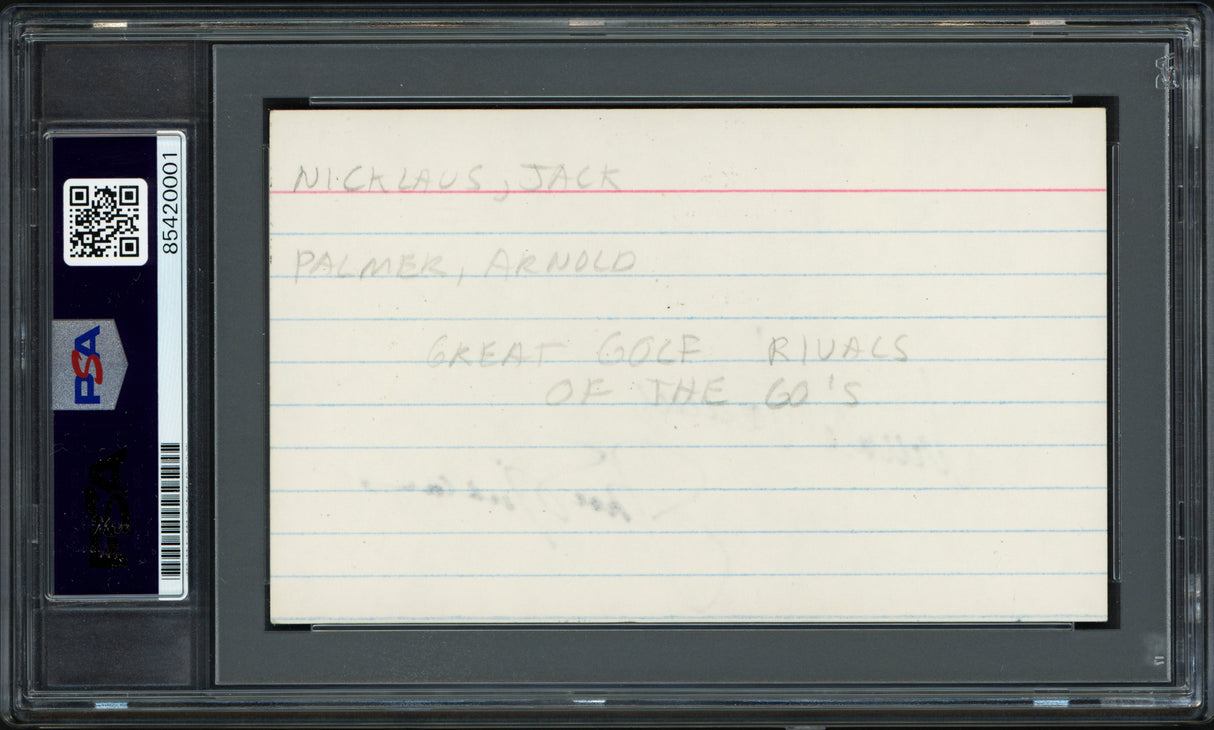 NICKLAUS, JACK
PALMER, ARNOLD
GREAT GOLF RIVALS
OF THE 60'S
85420001
PSA
PSA